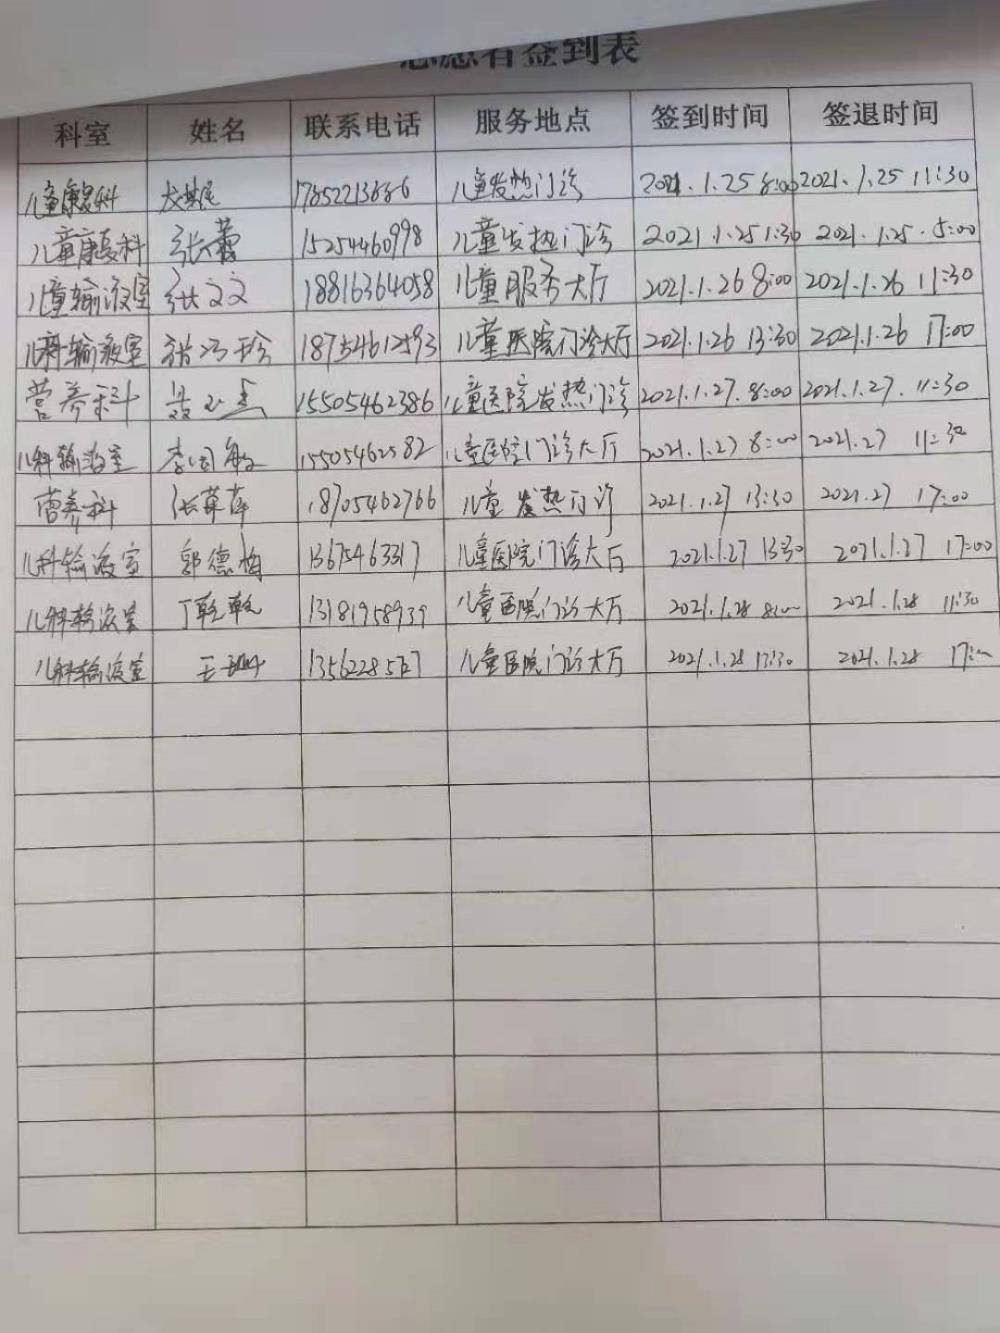 志愿者签到表
科室 姓名 联系电话 服务地点 签到时间 签退时间
儿童康复科 儿童发热门诊 2021.1.25 8:00 2021.1.25 11:30
儿童康复科 张蕾 15254460998 儿童发热门诊 2021.1.25 1:30 2021.1.25. 5:00
儿童输液室 张文文 18816364058 儿童服务大厅 2021.1.26 8:00 2021.1.26 11:30
儿科输液室 儿童医院门诊大厅 2021.1.26 13:30 2021.1.26 17:00
营养科 15505462386 儿童医院发热门诊 2021.1.27. 8:00 2021.1.27. 11:30
儿科输液室 15505462582 儿童医院门诊大厅 2021.1.27 8:00 2021.27 11:30
营养科 张萍萍 18705462766 儿童发热门诊 2021.1.27 13:30 2021.27 17:00
儿科输液室 郭德梅 13675463317 儿童医院门诊大厅 2021.1.27 13:30 2021.1.27 17:00
儿科输液室 丁乾乾 13181958939 儿童医院门诊大厅 2021.1.28 8:00 2021.1.28 11:30
儿科输液室 儿童医院门诊大厅 2021.1.28 13:30 2021.1.28 17:00